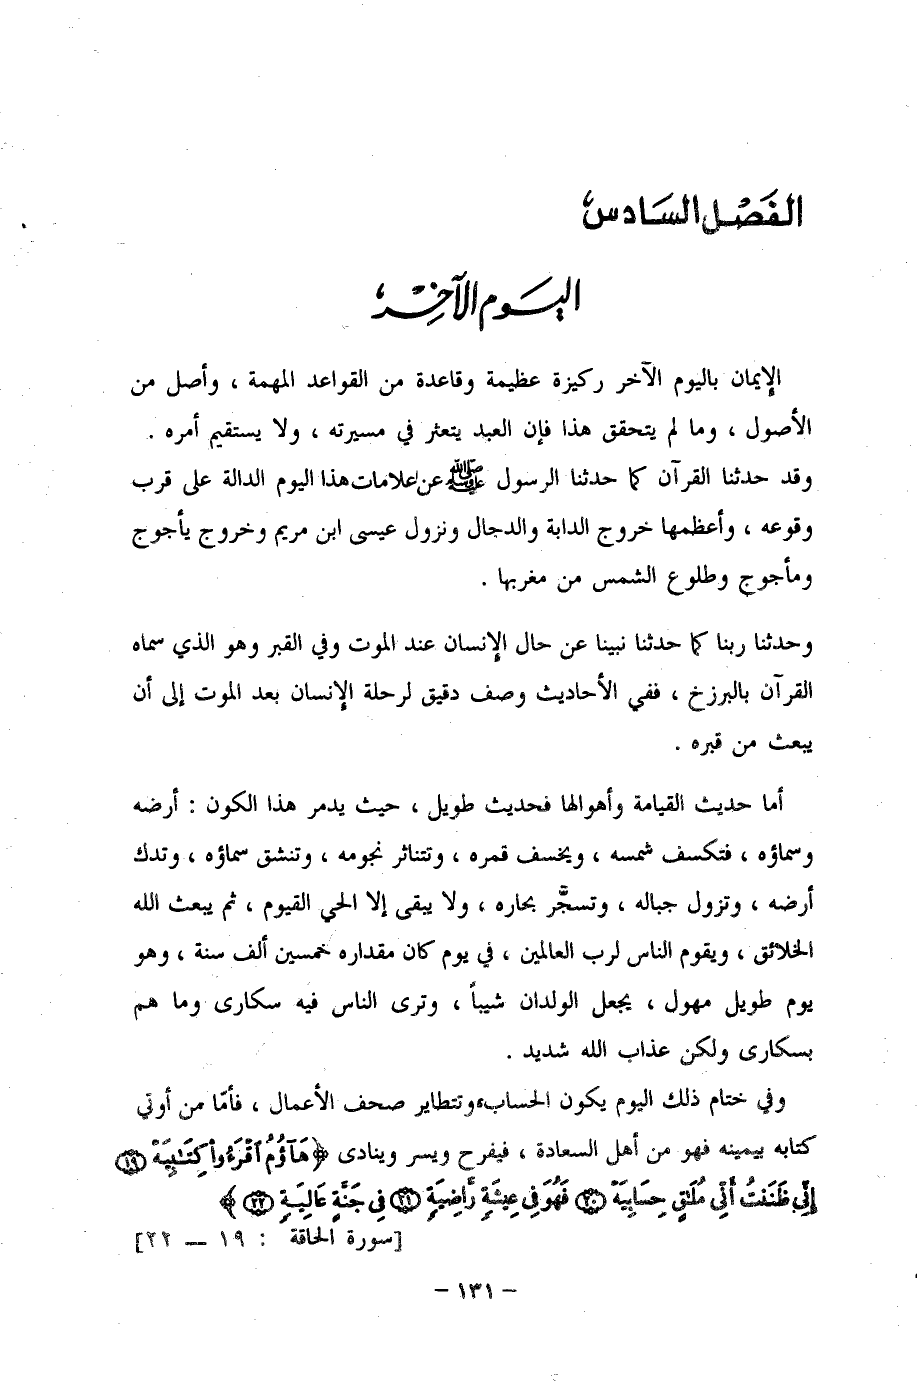 الفَصْل السَادس
اليَوم الآخِر
الإيمان باليوم الآخر ركيزة عظيمة وقاعدة من القواعد المهمة ، وأصل من
الأصول ، وما لم يتحقق هذا فإن العبد يتعثر في مسيرته ، ولا يستقيم أمره .
وقد حدثنا القرآن كما حدثنا الرسول ﷺ عن علامات هذا اليوم الدالة على قرب
وقوعه ، وأعظمها خروج الدابة والدجال ونزول عيسى ابن مريم وخروج يأجوج
ومأجوج وطلوع الشمس من مغربها .
وحدثنا ربنا كما حدثنا نبينا عن حال الإنسان عند الموت وفي القبر وهو الذي سماه
القرآن بالبرزخ ، ففي الأحاديث وصف دقيق لرحلة الإنسان بعد الموت إلى أن
يبعث من قبره .
أما حديث القيامة وأهوالها فحديث طويل ، حيث يدمر هذا الكون : أرضه
وسماؤه ، فتكسف شمسه ، ويخسف قمره ، وتتناثر نجومه ، وتنشق سماؤه ، وتدك
أرضه ، وتزول جباله ، وتسجَّر بحاره ، ولا يبقى إلا الحي القيوم ، ثم يبعث الله
الخلائق ، ويقوم الناس لرب العالمين ، في يوم كان مقداره خمسين ألف سنة ، وهو
يوم طويل مهول ، يجعل الولدان شيباً ، وترى الناس فيه سكارى وما هم
بسكارى ولكن عذاب الله شديد .
وفي ختام ذلك اليوم يكون الحساب، وتتطاير صحف الأعمال ، فأمّا من أوتي
كتابه بيمينه فهو من أهل السعادة ، فيفرح ويسر وينادى ﴿هَآؤُمُ ٱقْرَءُوا۟ كِتَٰبِيَهْ ۝١٩
إِنِّي ظَنَنتُ أَنِّي مُلَٰقٍ حِسَابِيَهْ ۝٢٠ فَهُوَ فِي عِيشَةٍ رَّاضِيَةٍ ۝٢١ فِي جَنَّةٍ عَالِيَةٍ ۝٢٢ ﴾
[سورة الحاقة : ١٩ ــ ٢٢]
- ١٣١ -